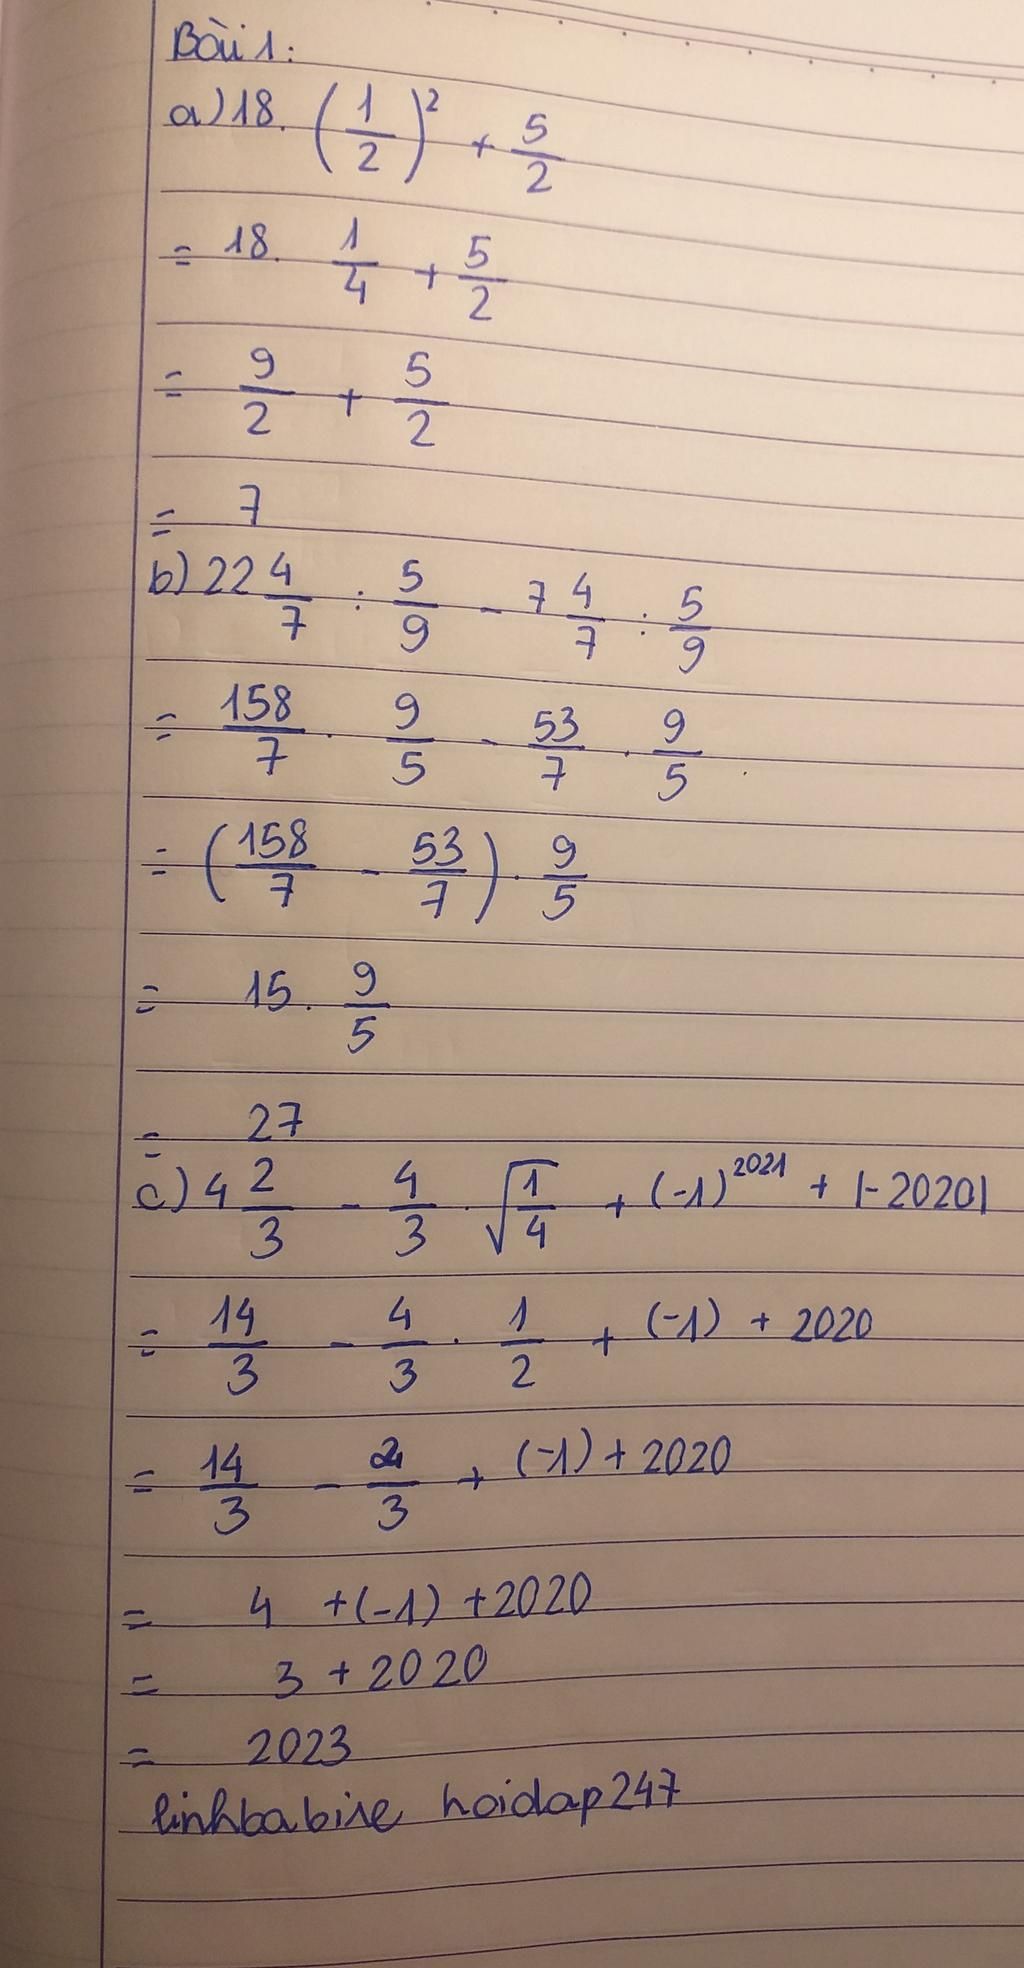 Bài 1:
a) 18. (1/2)² + 5/2
= 18. 1/4 + 5/2
= 9/2 + 5/2
= 7
b) 22 4/7 : 5/9 - 7 4/7 : 5/9
= 158/7 . 9/5 - 53/7 . 9/5
= (158/7 - 53/7) . 9/5
= 15. 9/5
= 27
c) 4 2/3 - 4/3 . √(1/4) + (-1)²⁰²¹ + |-2020|
= 14/3 - 4/3 . 1/2 + (-1) + 2020
= 14/3 - 2/3 + (-1) + 2020
= 4 + (-1) + 2020
= 3 + 2020
= 2023
linhbabie hoidap247